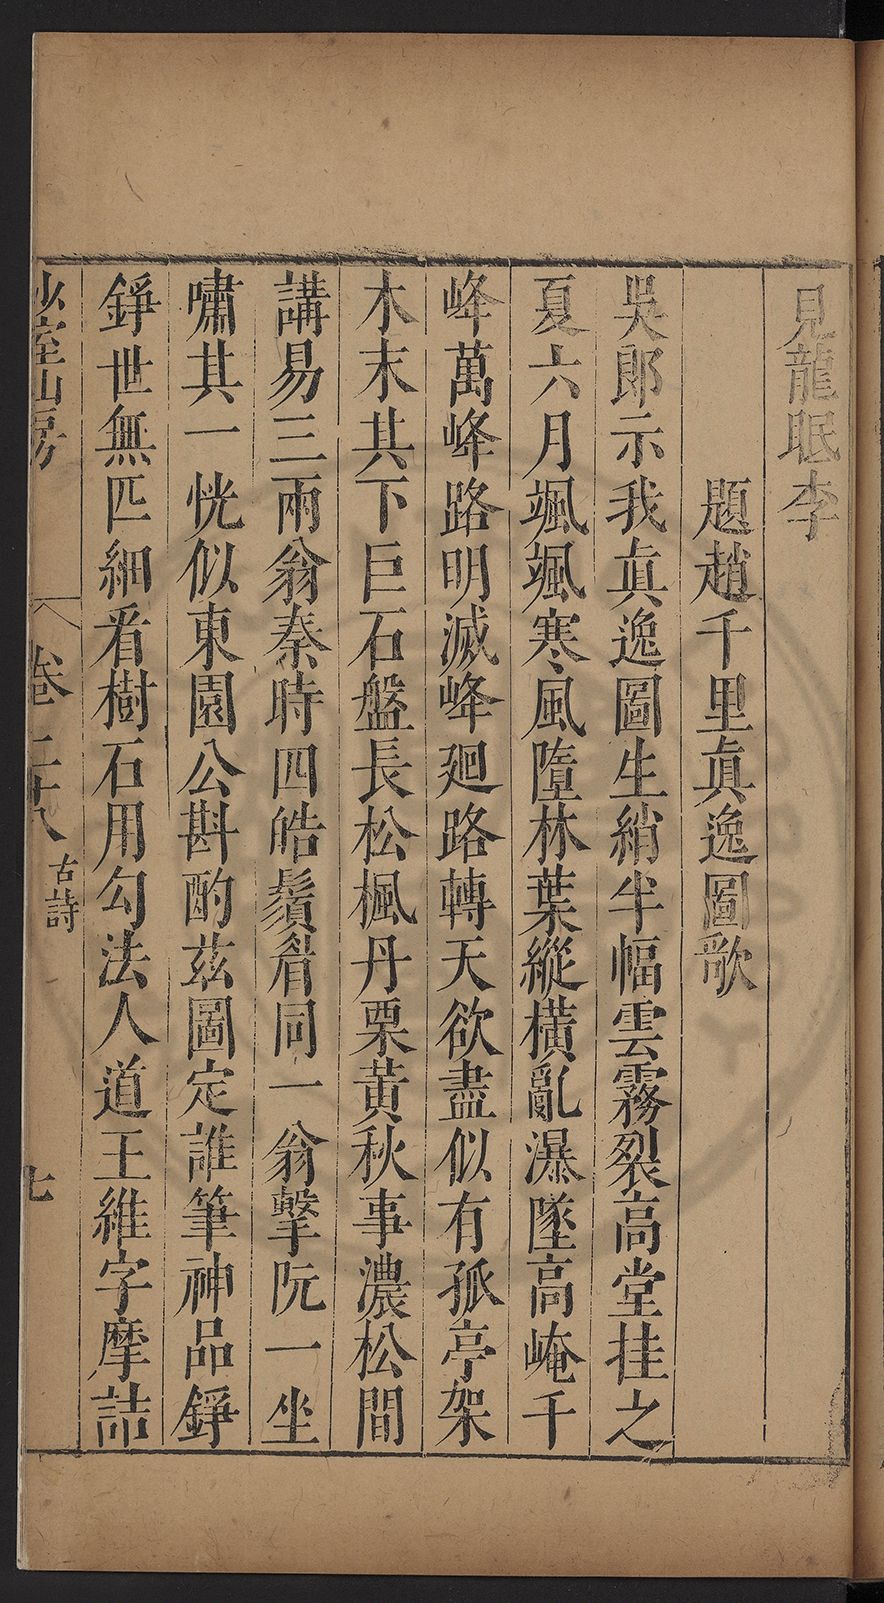 見龍眠李
題趙千里真逸圖歌
吳郎示我真逸圖生綃半幅雲霧裂高堂挂之
夏六月颯颯寒風墮林葉縱橫亂瀑墜高崦千
峰萬峰路明滅峰廻路轉天欲盡似有孤亭架
木末其下巨石盤長松楓丹栗黃秋事濃松間
講易三兩翁秦時四皓鬚眉同一翁擊阮一坐
嘯其一恍似東園公斟酌茲圖定誰筆神品錚
錚世無匹細看樹石用勾法人道王維字摩詰
少室山房
卷二十八
古詩
七